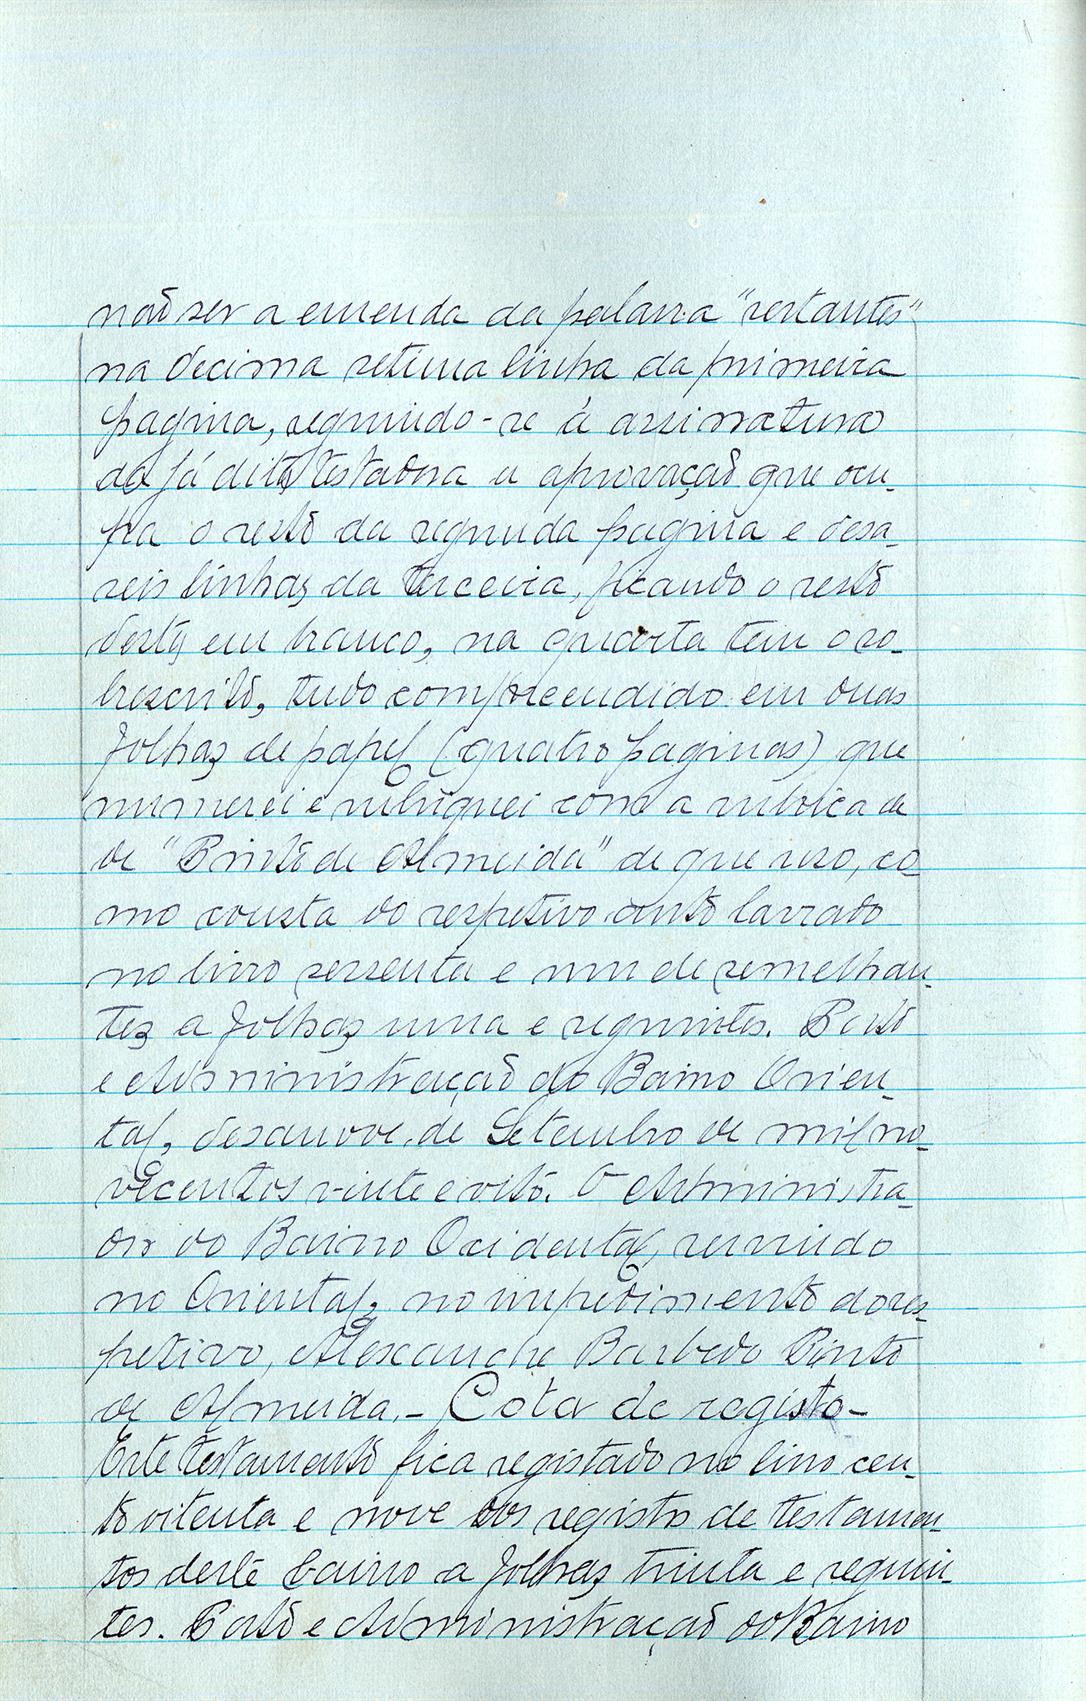 não ser a emenda da palavra "restantes"
na decima setima linha da primeira
pagina, seguindo-se á assinatura
da já dita testadora a aprovação que ocu-
pa o resto da segunda pagina e desa-
seis linhas da terceira, ficando o resto
desta em branco, na quarta tem o so-
brescrito, tudo compreendido em duas
folhas de papel (quatro paginas) que
numerei e rubriquei com a rubrica de
de "Pinto de Almeida" de que uso, co-
mo consta do respetivo auto lavrado
no livro sessenta e um de semelhan-
tes a folhas uma e seguintes. Porto
e Administração do Bairro Orien-
tal, desanove de Setembro de mil no-
vecentos vinte e oito. O Administra-
dor do Bairro Ocidental, servindo
no Oriental, no impedimento do res-
petivo, Alexandre Barbedo Pinto
de Almeida. - Cota de registo -
Este testamento fica registado no livro cen-
to oitenta e nove dos registos de testamen-
tos deste bairro a folhas trinta e seguin-
tes. Porto e Administração do Bairro